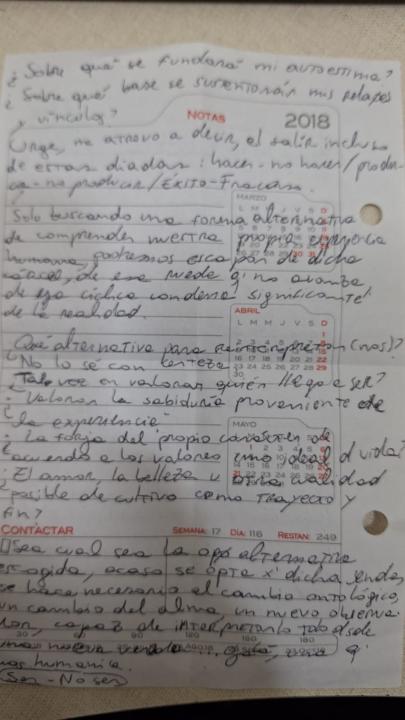 ¿Sobre qué se fundará mi autoestima?
¿Sobre qué base se sustentarán mis relatos
y vínculos?
NOTAS 2018
Urge, me atrevo a decir, el salir incluso
de estas díadas: hacer-no hacer/produ-
cir-no producir/Éxito-Fracaso.
MARZO
L M M J V S D
Solo buscando una forma alternativa
de comprender nuestra propia experiencia
humana, podremos escapar de dicha
cárcel, de esa rueda q' no avanza
de esa cíclica condena significante
de la realidad.
ABRIL
L M M J V S D
¿Qué alternativa para reinterpretar(nos)?
No lo sé con certeza
Tal vez en valorar quién llego a ser?
· Valorar la sabiduría proveniente de
la experiencia
MAYO
· La forja del propio carácter de
acuerdo a los valores, un ideal d vida?
· El amor, la belleza u otra cualidad
posible de cultivo como trayecto y
fin?
CONTACTAR SEMANA: 17 DÍA: 116 RESTAN: 249
O sea cual sea la opc alternativa
escogida, acaso se opte x' dicha senda,
se hace necesario el cambio ontológico,
un cambio del alma, un nuevo observa-
dor, capaz de interpretarlo todo desde
una nueva q'
nos humaniza.
(Ser-No ser)